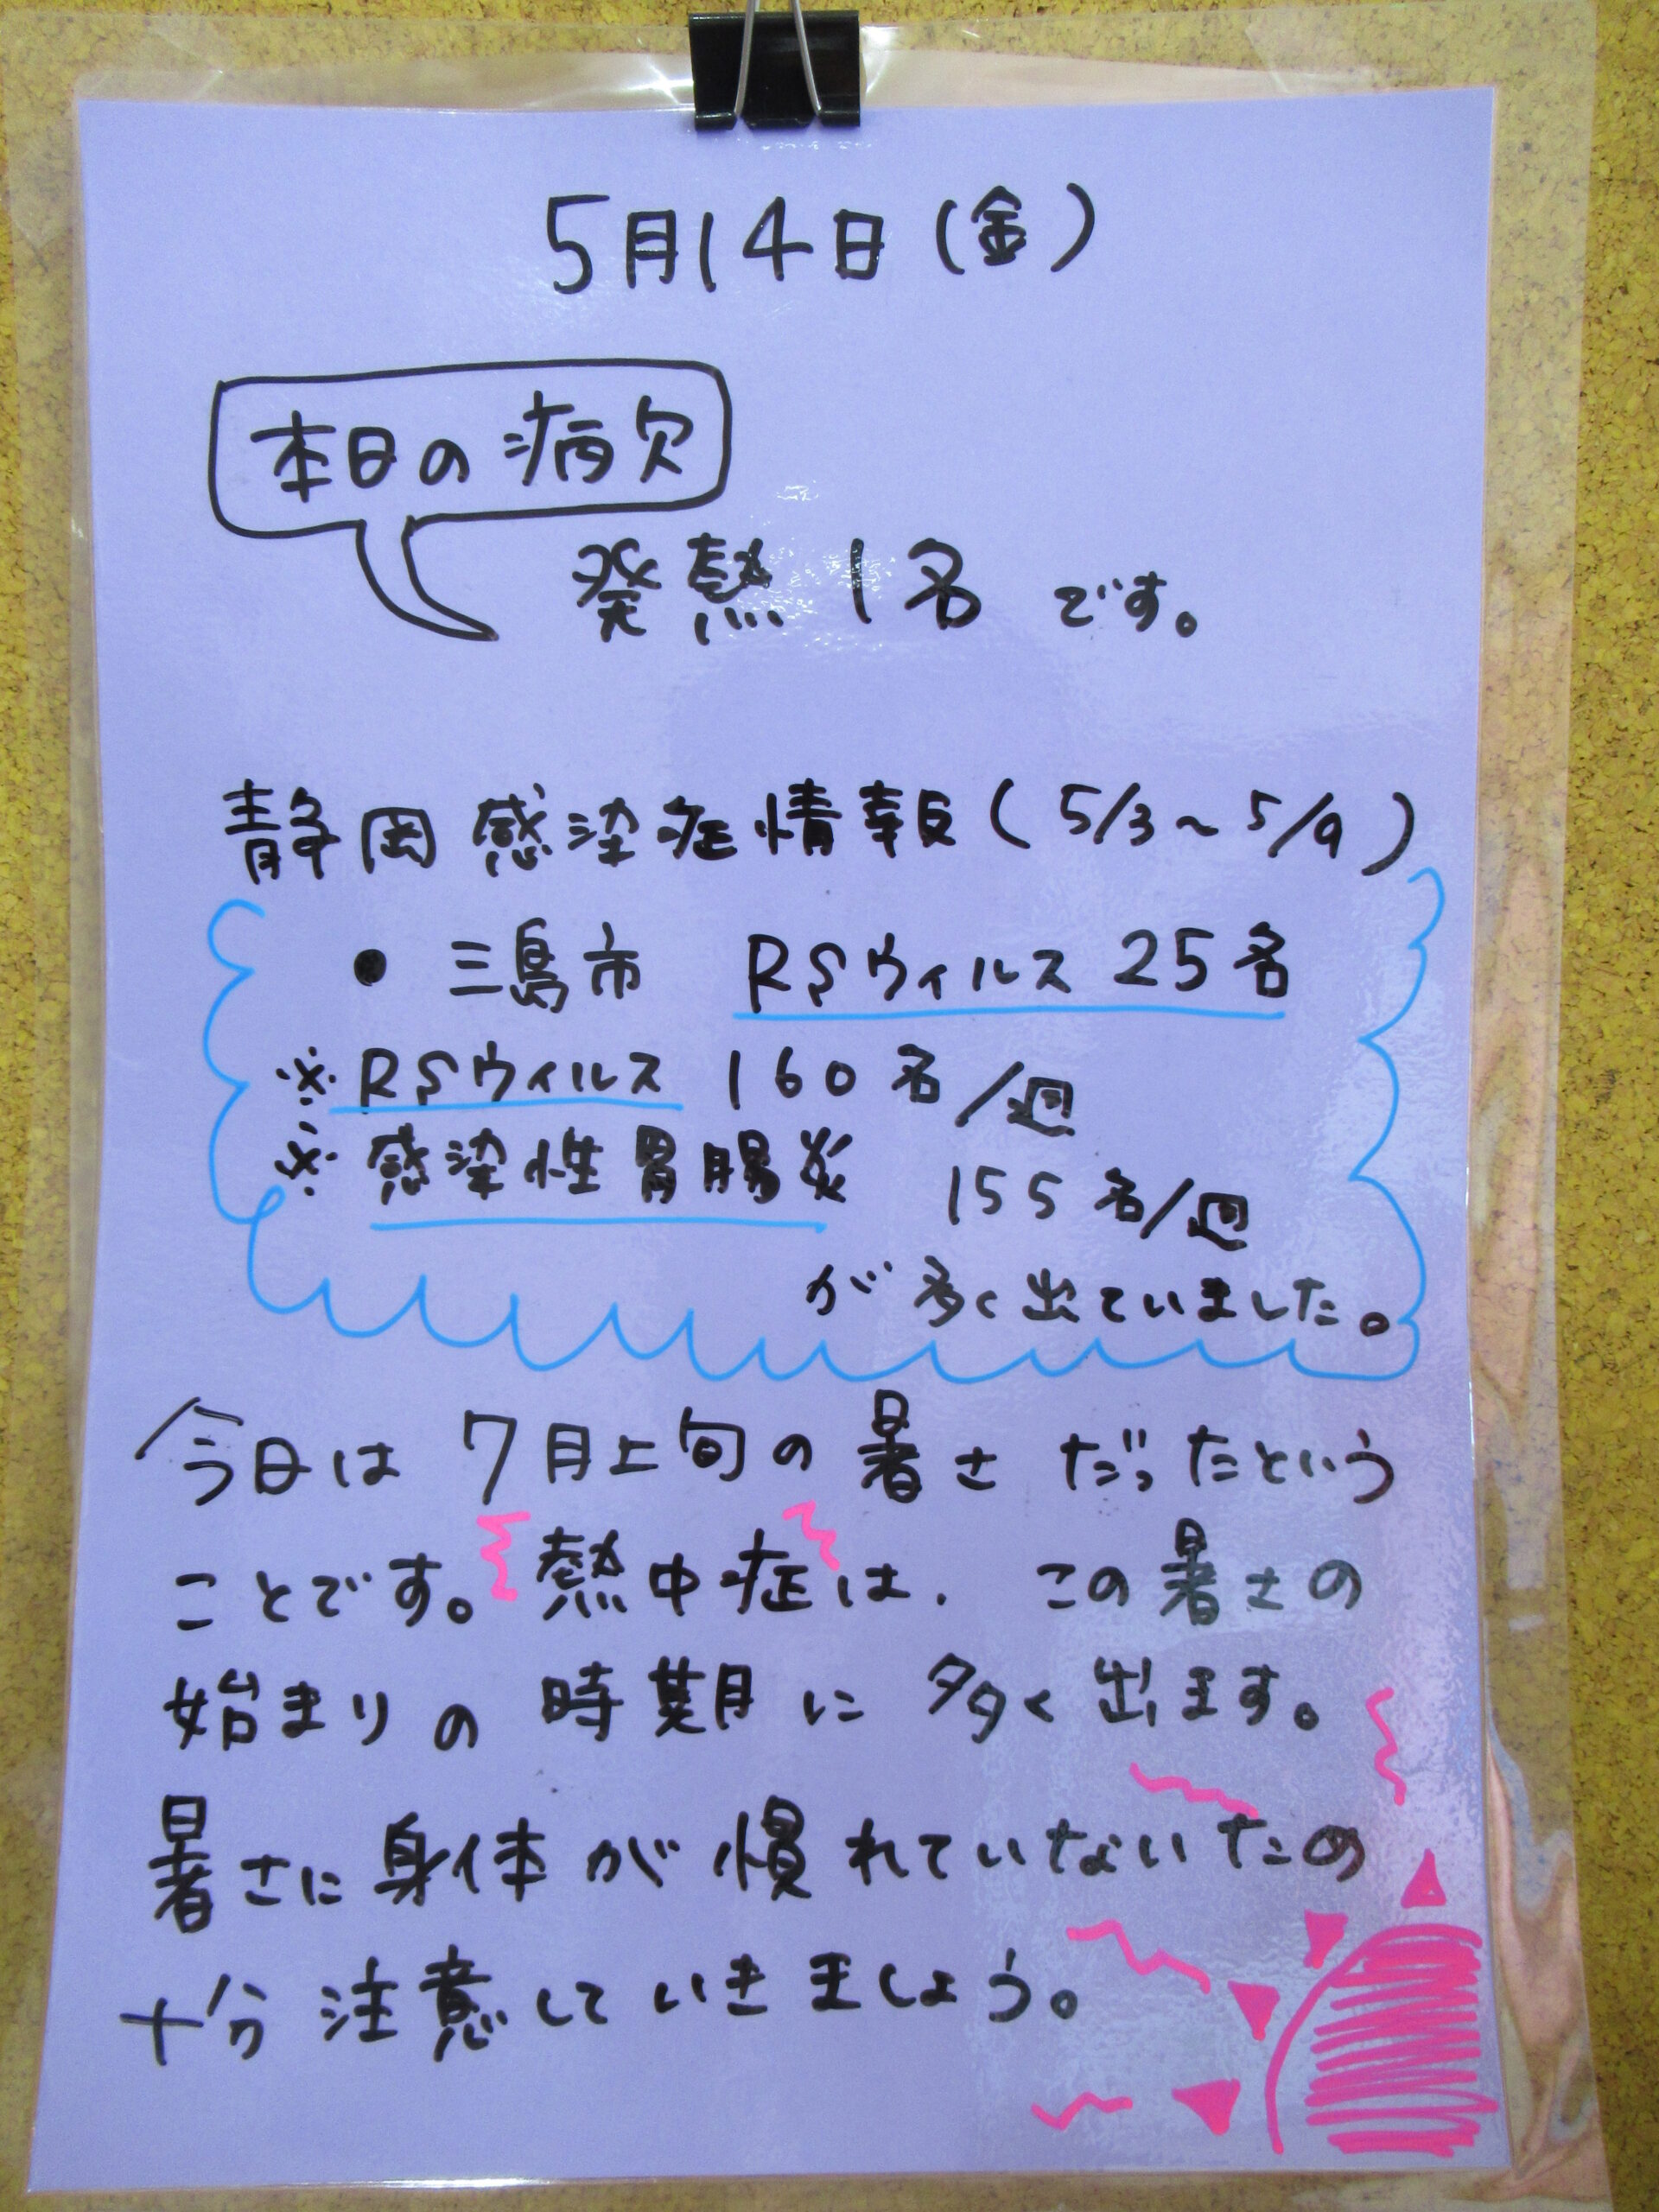 5月14日(金)
本日の病欠
発熱 1名 です。
静岡感染症情報(5/3~5/9)
● 三島市 RSウィルス 25名
※RSウィルス 160名/週
※感染性胃腸炎 155名/週
が多く出ていました。
今日は7月上旬の暑さだったという
ことです。熱中症は、この暑さの
始まりの時期に多く出ます。
暑さに身体が慣れていないため
十分注意していきましょう。